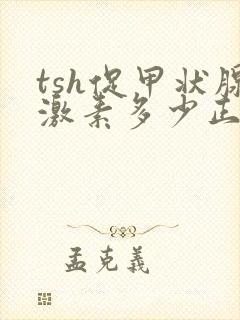 tsh促甲状腺
激素多少正
孟克義